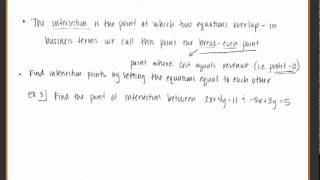 • The intersection is the point at which two equations overlap - in
business terms we call this point the break-even point
point where cost equals revenue (i.e. profit = 0)
• Find intersection points by setting the equations equal to each other
ex 3] Find the point of intersection between 2x+4y=11 ; -5x+3y=5